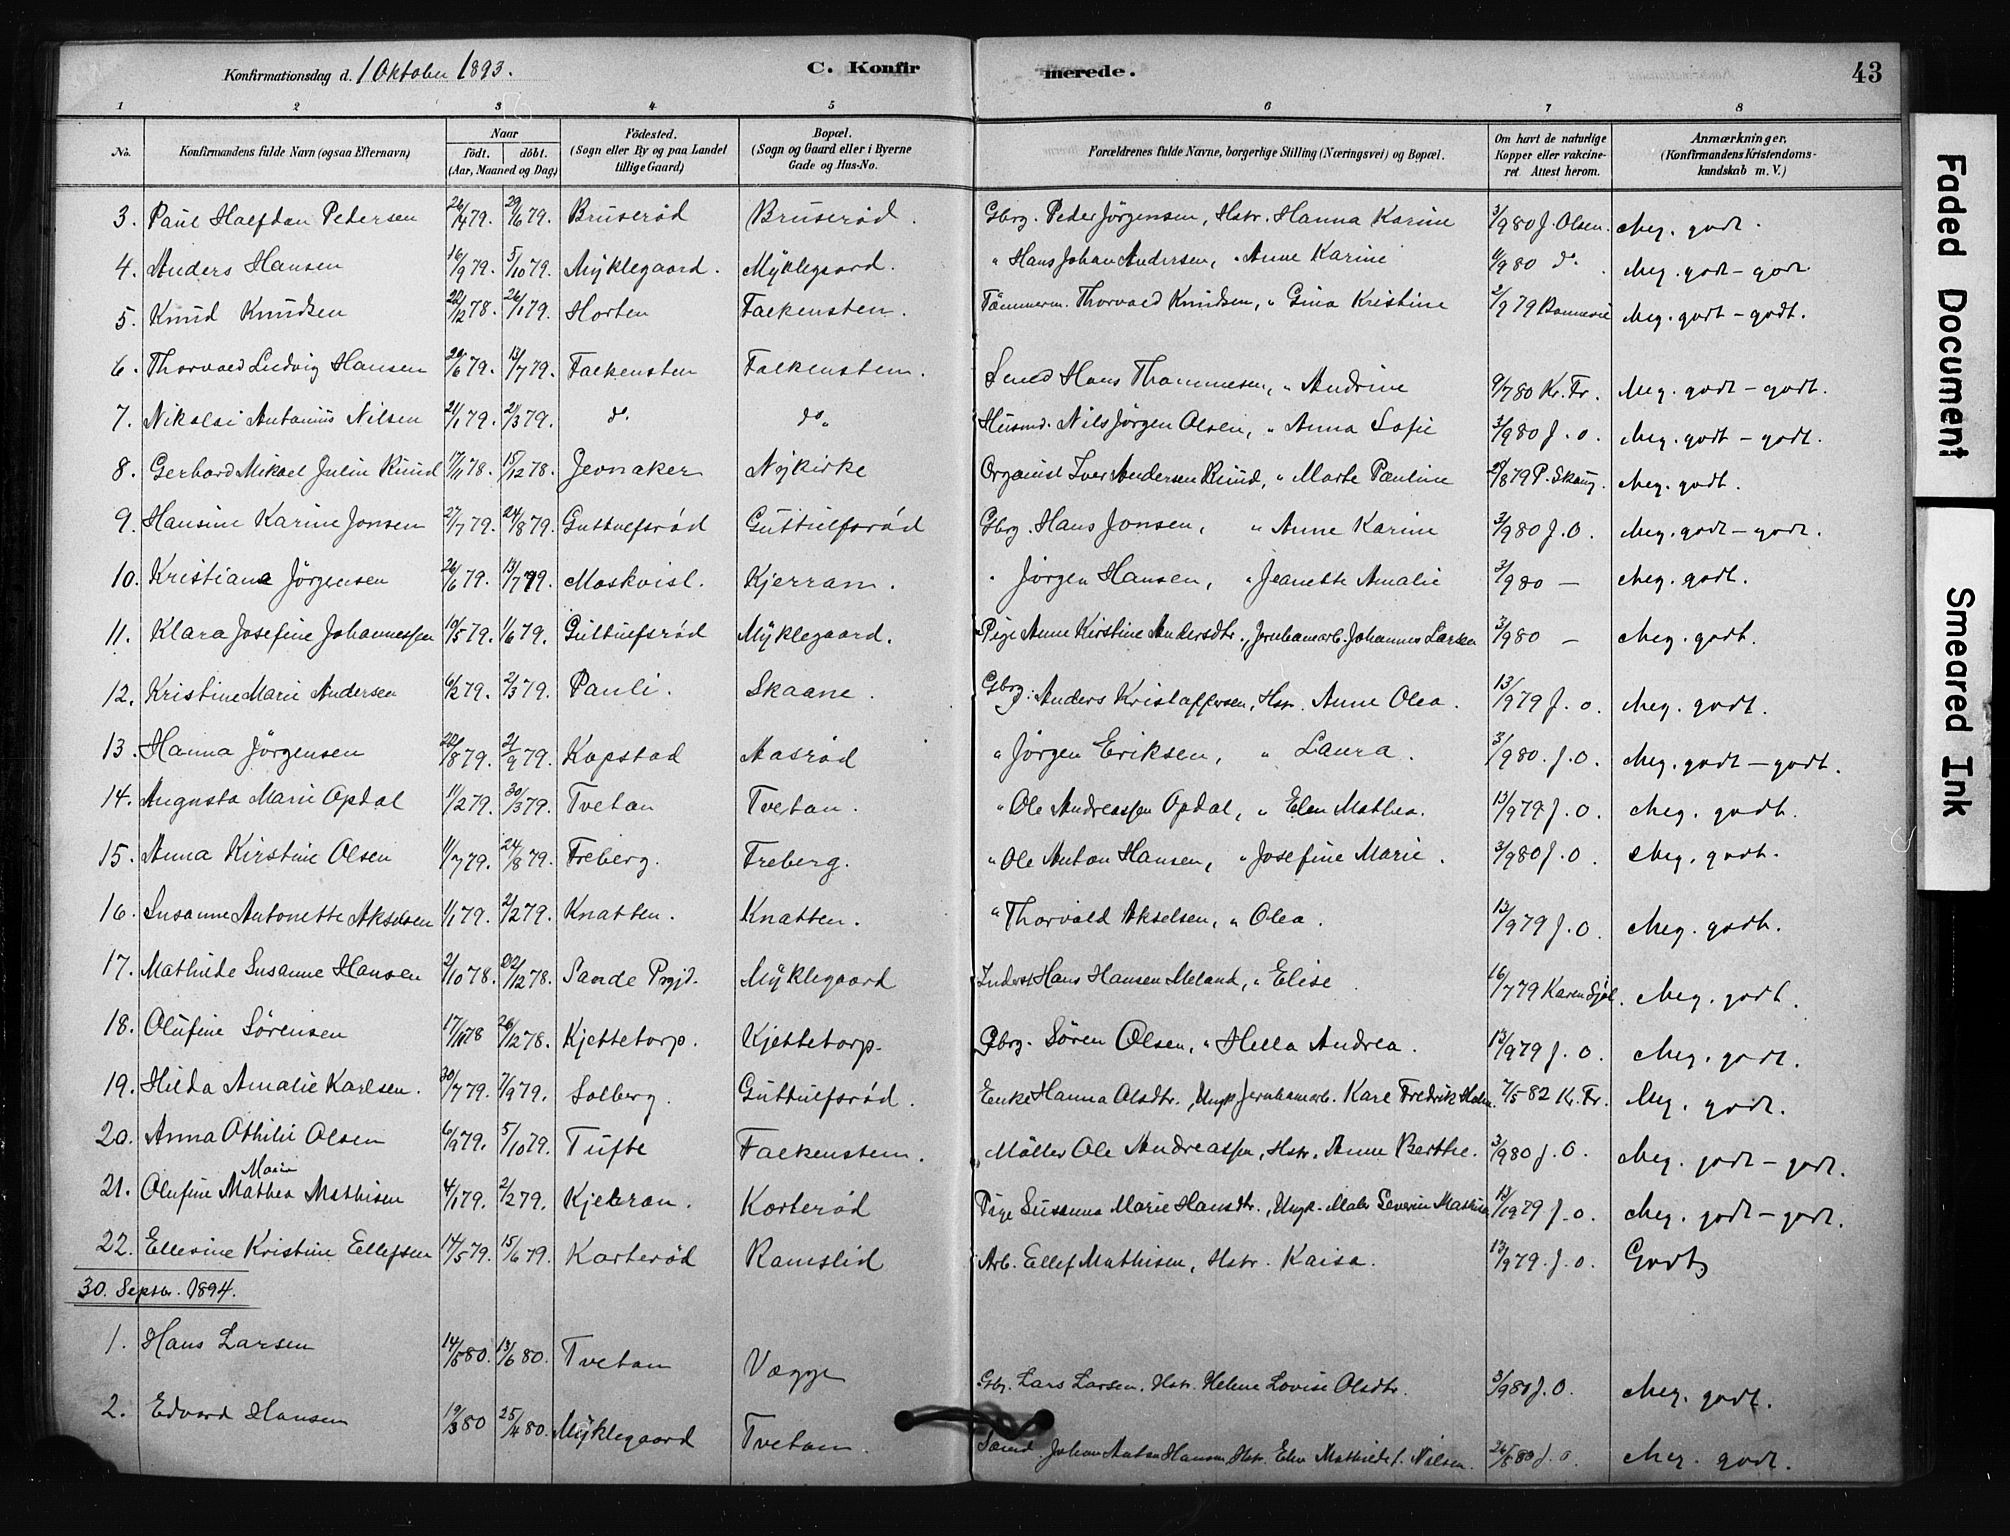 Konfirmationsdag d. 1 Oktober 1893. C. Konfirmerede. 43
1 2 3 4 5 6 7 8
No. Konfirmandens fulde Navn (ogsaa Efternavn) Naar født. døbt. (Aar, Maaned og Dag) Födested. (Sogn eller By og paa Landet tillige Gaard) Bopæl. (Sogn og Gaard eller i Byerne Gade og Hus-No. Forældrenes fulde Navne, borgerlige Stilling (Næringsvei) og Bopæl. Om havt de naturlige Kopper eller vakcineret Attest herom. Anmærkninger, (Konfirmandens Kristendomskundskab m. V.)
3. Paul Halfdan Pedersen 26/4 79. 29/6 79. Bruserød Bruserød. Gbrg. Peder Jörgensen, Hstr. Hanna Karine 3/9 80 J. Olsen. Meg. godt.
4. Anders Hansen 16/9 79. 5/10 79. Myklegaard. Myklegaard. " Hans Johan Andersen, " Anne Karine 4/9 80 do. Meg. godt - godt
5. Knud Knudsen 22/12 78. 26/1 79. Horten Falkensten. Tömmerm. Thorvald Knudsen, " Gina Kristine 2/9 79 Meg. godt - godt.
6. Thorvald Ludvig Hansen 20/6 79. 13/7 79. Falkensten Falkensten. Smed Hans Thommesen, " Andrine 9/7 80 Kr. Fr. Meg. godt - godt.
7. Nikolai Antonius Nilsen 21/1 79. 2/3 79. do. do. Husmd. Nils Jörgen Olsen, " Anna Sofie 3/9 80 J. O. Meg. godt - godt.
8. Gerhard Mikael Julin Ruud 17/11 78. 15/12 78. Jevnaker Nykirke Organist Iver Andersen Ruud, " Marte Pauline 29/8 79 P. Skaug. Meg. godt.
9. Hansine Karine Jonsen 27/7 79. 24/8 79. Guttulfsrød Guttulfsrød Gbrg. Hans Jonsen, " Anne Karine 3/9 80 J. O. Meg. godt - godt.
10. Kristiane Jörgensen 26/6 79. 13/7 79. Moskvisl. Kjerran. " Jörgen Hansen, " Jeanette Amalie 3/9 80 — Meg. godt.
11. Klara Josefine Johannessen 10/5 79. 1/6 79. Guttulfsrød Myklegaard. Pige Anne Kirstine Andersdtr., Jernbanearb. Johannes Larsen 3/9 80 — Meg. godt.
12. Kristine Marie Andersen 6/2 79. 2/3 79. Pauli. Skaane. Gbrg. Anders Kristoffersen, Hstr. Anne Olea. 13/9 79 J. O. Meg. godt.
13. Hanna Jörgensen 22/8 79. 21/9 79. Kopstad Aasrød " Jörgen Eriksen, " Laura. 3/9 80. J. O. Meg. godt - godt.
14. Augusta Marie Opdal 11/2 79. 30/3 79. Tvetan Tvetan. " Ole Andreassen Opdal, " Elen Mathea. 13/9 79 J. O. Meg. godt.
15. Anna Kirstine Olsen 1/7 79. 24/8 79. Freberg. Freberg. " Ole Anton Hansen, " Josefine Marie. 3/9 80 J. O. Meg. godt.
16. Susanne Antonette Akselsen 1/1 79. 2/2 79. Knatten. Knatten. " Thorvald Akselsen, " Olea. 13/9 79 J. O. Meg. godt.
17. Mathilde Susanne Hansen 2/10 78. 22/12 78. Sande Prgjd. Myklegaard Inderst Hans Hansen Meland, " Elise 16/7 79 Karen Meg. godt.
18. Olufine Sörensen 17/11 78 26/12 78. Kjettetorp. Kjettetorp. Gbrg. Sören Olsen, " Hella Andrea. 13/9 79 J. O. Meg. godt.
19. Hilda Amalie Karlsen. 30/7 79. 7/9 79. Solberg. Guttulfsrød. Enke Hanna Olsdtr., Ungk Jernbanearb. Karl Fredrik Holm. 7/5 82 Kr. Fr. Meg. godt.
20. Anna Othilie Olsen 6/9 79. 5/10 79. Tufte Falkensten. Möller Ole Andreassen, Hstr. Anne Berthe. 3/9 80 J. O. Meg. godt - godt.
21. Olufine Mathea Marie Mathisen 4/1 79. 2/2 79. Kjerran. Korterød Pige Susanna Marie Hansdtr., Ungk. Maler Severin Mathisen 13/9 79 J. O. Meg. godt - godt.
22. Ellevine Kristine Ellefsen 14/5 79. 15/6 79. Korterød Ramslid Arb. Ellef Mathisen, Hstr. Kaisa. 13/9 79. J. O. Godt
30. Septbr. 1894.
1. Hans Larsen 14/5 80. 13/6 80. Tvetan Vegge Gbr. Lars Larsen, Hstr. Helene Lovise Olsdtr. 3/9 80 J. O. Meg. godt.
2. Edvard Hansen 19/3 80 25/4 80. Myklegaard Tvetan. Johan Anton Hansen, Hstr. Elen Mathilde f. Nilsen. 26/5 80 J. O. Meg. godt.
Faded Document
Smeared Ink